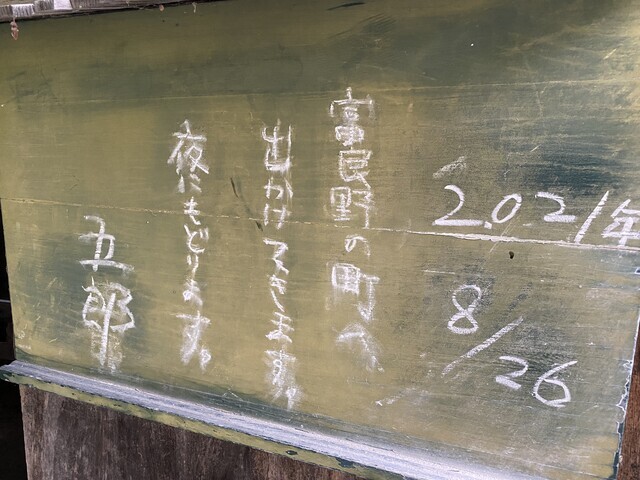 2021年
8/26
富良野の町へ
出かけてきます。
夜にもどります。
五郎